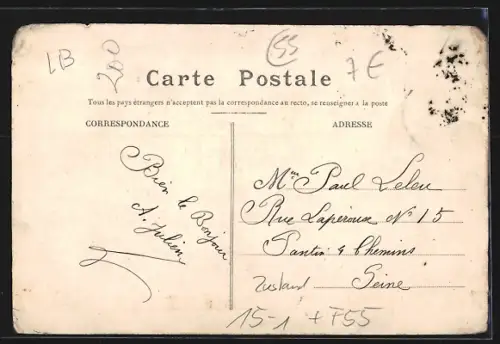 LB
200
55
7 €
Carte Postale
Tous les pays étrangers n'acceptent pas la correspondance au recto, se renseigner à la poste
CORRESPONDANCE
ADRESSE
Bien le Bonjour
A. Julien
Mme Paul Leleu
Rue Lapérouse N° 15
Pantin 4 Chemins
Seine
Zustand
15-1 + F55